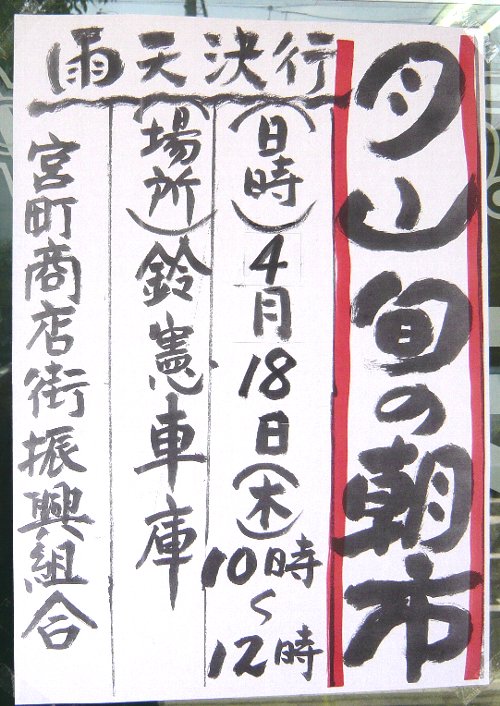 月山旬の朝市
雨天決行
(日時)4月18日(木)
10時
〜
12時
(場所)鈴憲車庫
宮町商店街振興組合